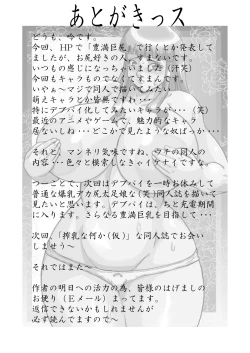 あとがきっス
どうも、吟です。
今回、HPで「豊満巨尻」で行くとか発表して
ましたが、お尻好きの人、すまないです。
いつもの感じになっちゃいました（汗笑）
今回もキャラものでなくてすまんです。
いやぁ～マジで同人で描いてみたい
萌えキャラとか皆無ですわ・・・
特にデブパイ化してみたいキャラが・・・（笑）
最近のアニメやゲームで、魅力的なキャラ
居ないしね・・・どこかで見たような奴ばっか・・・
それと、マンネリ気味ですね、ウチの同人の
内容・・・色々と模索しなきゃイケナイですなぁ。
つーことで、次回はデブパイを一時お休みして
普通な爆乳デカ尻太足娘な（笑）同人誌を描いて
見たいと思います。デブパイは、ちと充電期間
に入ります。さらなる豊満巨乳を目指して・・・
次回、「搾乳な何か（仮）」な同人誌でお会い
しませう～
それではまた～
作者の明日への活力の為、皆様のはげましの
お便り（Eメール）まってます。
返信できないかもしれませんが
必ず読んでますので～